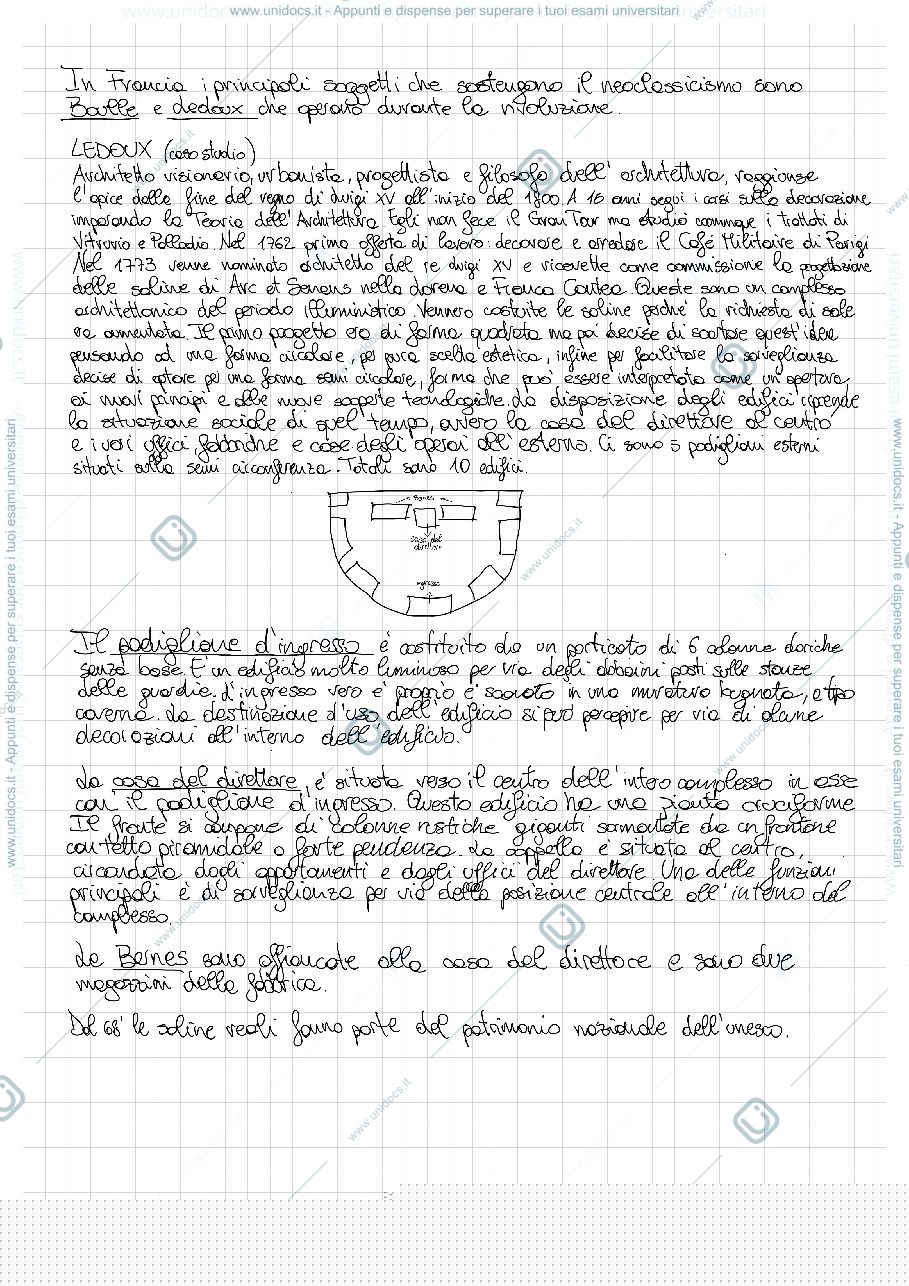 www.unidocs.it - Appunti e dispense per superare i tuoi esami universitari
In Francia i principali soggetti che sostengono il neoclassicismo sono
Boulle e Ledoux che operano durante la rivoluzione.
LEDOUX (caso studio)
Architetto visionario, urbanista, progettista e filosofo dell'architettura, raggiunse
l'apice dalla fine del regno di Luigi XV all'inizio del 1800. A 16 anni seguì i corsi sulla decorazione
imparando la Teoria dell'Architettura. Egli non fece il Gran Tour ma studiò comunque i trattati di
Vitruvio e Palladio. Nel 1762 prima offerta di lavoro: decorare e arredare il Cafè Militaire di Parigi
Nel 1773 venne nominato architetto del re Luigi XV e ricevette come commissione la progettazione
delle saline di Arc et Senans nella Lorena e Franca Contea. Queste sono un complesso
architettonico del periodo Illuministico. Vennero costruite le saline perché la richiesta di sale
era aumentata. Il primo progetto era di forma quadrata ma poi decise di scartare quest'idea
pensando ad una forma circolare, per pura scelta estetica, infine per facilitare la sorveglianza
decise di optare per una forma semi circolare, forma che può essere interpretata come un'apertura,
ai nuovi principi e alle nuove scoperte tecnologiche. La disposizione degli edifici riprende
la situazione sociale di quel tempo, ovvero la casa del direttore al centro
e i vari uffici, fabbriche e case degli operai all'esterno. Ci sono 5 padiglioni esterni
situati sulla semi circonferenza. Totali sono 10 edifici.
Bernes
casa del
direttore
ingresso
Il padiglione d'ingresso è costituito da un porticato di 6 colonne doriche
senza base. È un edificio molto luminoso per via degli abbaini posti sulle stanze
delle guardie. L'ingresso vero e proprio è scavato in una muratura bugnata, a tipo
caverna. La destinazione d'uso dell'edificio si può percepire per via di alcune
decorazioni all'interno dell'edificio.
La casa del direttore, è situata verso il centro dell'intero complesso in asse
con il padiglione d'ingresso. Questo edificio ha una pianta cruciforme
Il fronte si compone di colonne rustiche giganti sormontate da un frontone
con tetto piramidale a forte pendenza. La cappella è situata al centro,
circondata dagli appartamenti e dagli uffici del direttore. Una delle funzioni
principali è di sorveglianza per via della posizione centrale all'interno del
complesso.
Le Bernes sono affiancate alla casa del direttore e sono due
magazzini della fabbrica.
Dal 68' le saline reali fanno parte del patrimonio nazionale dell'unesco.